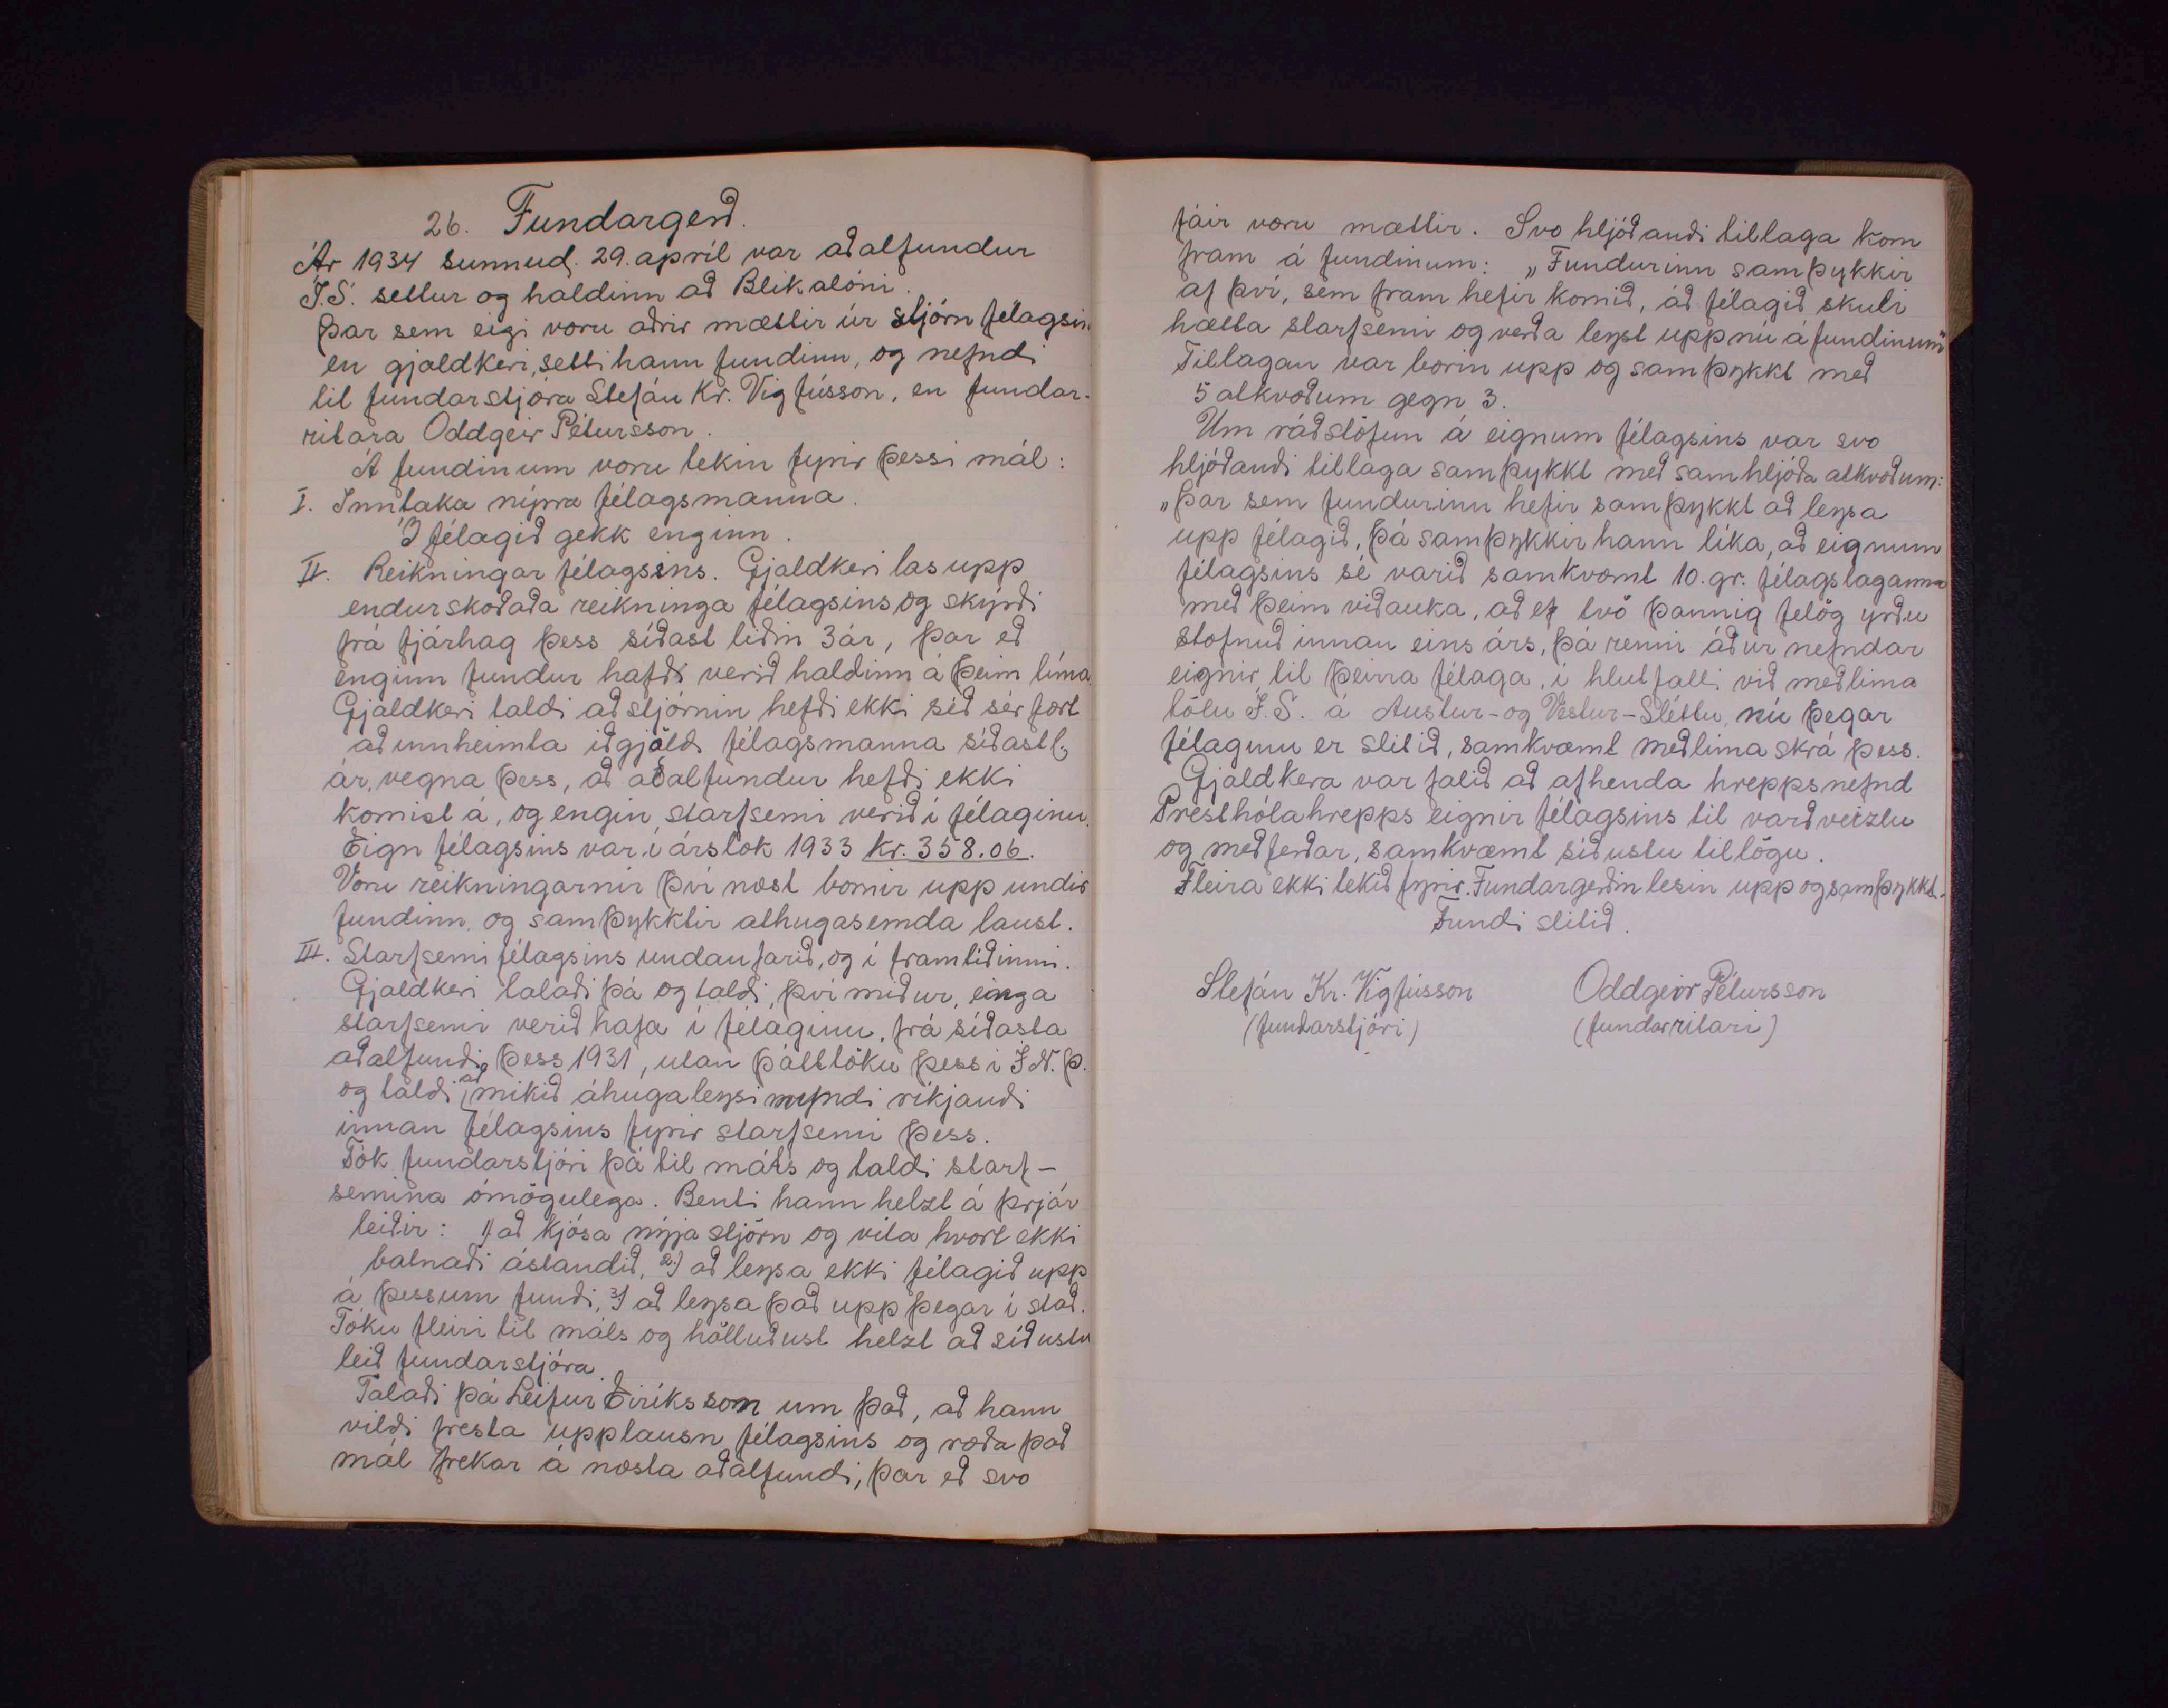 26. Fundargerð.
Ár 1934 sunnud. 29. apríl var aðalfundur
Í.S. settur og haldinn að Blikalóni.
Þar sem eigi voru aðrir mættir úr stjórn félagsin
en gjaldkeri, setti hann fundinn, og nefndi
til fundarstjóra Stefán Kr. Vigfússon, en fundar-
ritara Oddgeir Pétursson.
Á fundinum voru tekin fyrir þessi mál:
I. Inntaka nýrra félagsmanna.
Í félagið gekk enginn.
II. Reikningar félagsins. Gjaldkeri las upp
endurskoðaða reikninga félagsins og skýrði
frá fjárhag þess síðast liðin 3 ár, þar eð
enginn fundur hafði verið haldinn á þeim tíma.
Gjaldkeri taldi að stjórnin hefði ekki séð sér fært
að innheimta iðgjöld félagsmanna síðastl.
ár, vegna þess, að aðalfundur hefði ekki
komist á, og engin starfsemi verið í félaginu.
Eign félagsins var í árslok 1933 kr. 358.06.
Voru reikningarnir því næst bornir upp undir
fundinn, og samþykktir athugasemda laust.
III. Starfsemi félagsins undanfarið, og í framtíðinni.
Gjaldkeri talaði þá og taldi, því miður, einga
starfsemi verið hafa í félaginu, frá síðasta
aðalfundi þess 1931, utan þátttöku þess í Í.N.Þ.
og taldi að mikið áhugaleysi myndi ríkjandi
innan félagsins fyrir starfsemi þess.
Tók fundarstjóri þá til máls og taldi starf-
semina ómögulega. Benti hann helzt á þrjár
leiðir: 1) að kjósa nýja stjórn og vita hvort ekki
batnaði ástandið, 2.) að leysa ekki félagið upp
á þessum fundi, 3) að leysa það upp þegar í stað.
Tóku fleiri til máls og hölluðust helzt að síðustu
leið fundarstjóra.
Talaði þá Leifur Eiríksson um það, að hann
vildi fresta upplausn félagsins og ræða það
mál frekar á næsta aðalfundi, þar eð svo
fáir voru mættir. Svo hljóðandi tillaga kom
fram á fundinum: „Fundurinn samþykkir
af því, sem fram hefir komið, að félagið skuli
hætta starfsemi og verða leyst upp nú á fundinum"
Tillagan var borin upp og samþykkt með
5 atkvæðum gegn 3.
Um ráðstöfun á eignum félagsins var svo
hljóðandi tillaga samþykkt með samhljóða atkvæðum:
„Þar sem fundurinn hefir samþykkt að leysa
upp félagið, þá samþykkir hann líka, að eignum
félagsins sé varið samkvæmt 10. gr. félagslaganna
með þeim viðauka, að ef tvö þannig felög yrðu
stofnuð innan eins árs, þá renni áður nefndar
eignir til þeirra félaga, í hlutfalli við meðlima
tölu Í.S. á Austur- og Vestur-Sléttu, nú þegar
félaginu er slitið, samkvæmt meðlima skrá þess.
Gjaldkera var falið að afhenda hreppsnefnd
Presthólahrepps eignir félagsins til varðveizlu
og meðferðar, samkvæmt síðustu tillögu.
Fleira ekki tekið fyrir. Fundargerðin lesin upp og samþykkt.
Fundi slitið.
Stefán Kr. Vigfússon Oddgeir Pétursson
(fundarstjóri) (fundarritari)